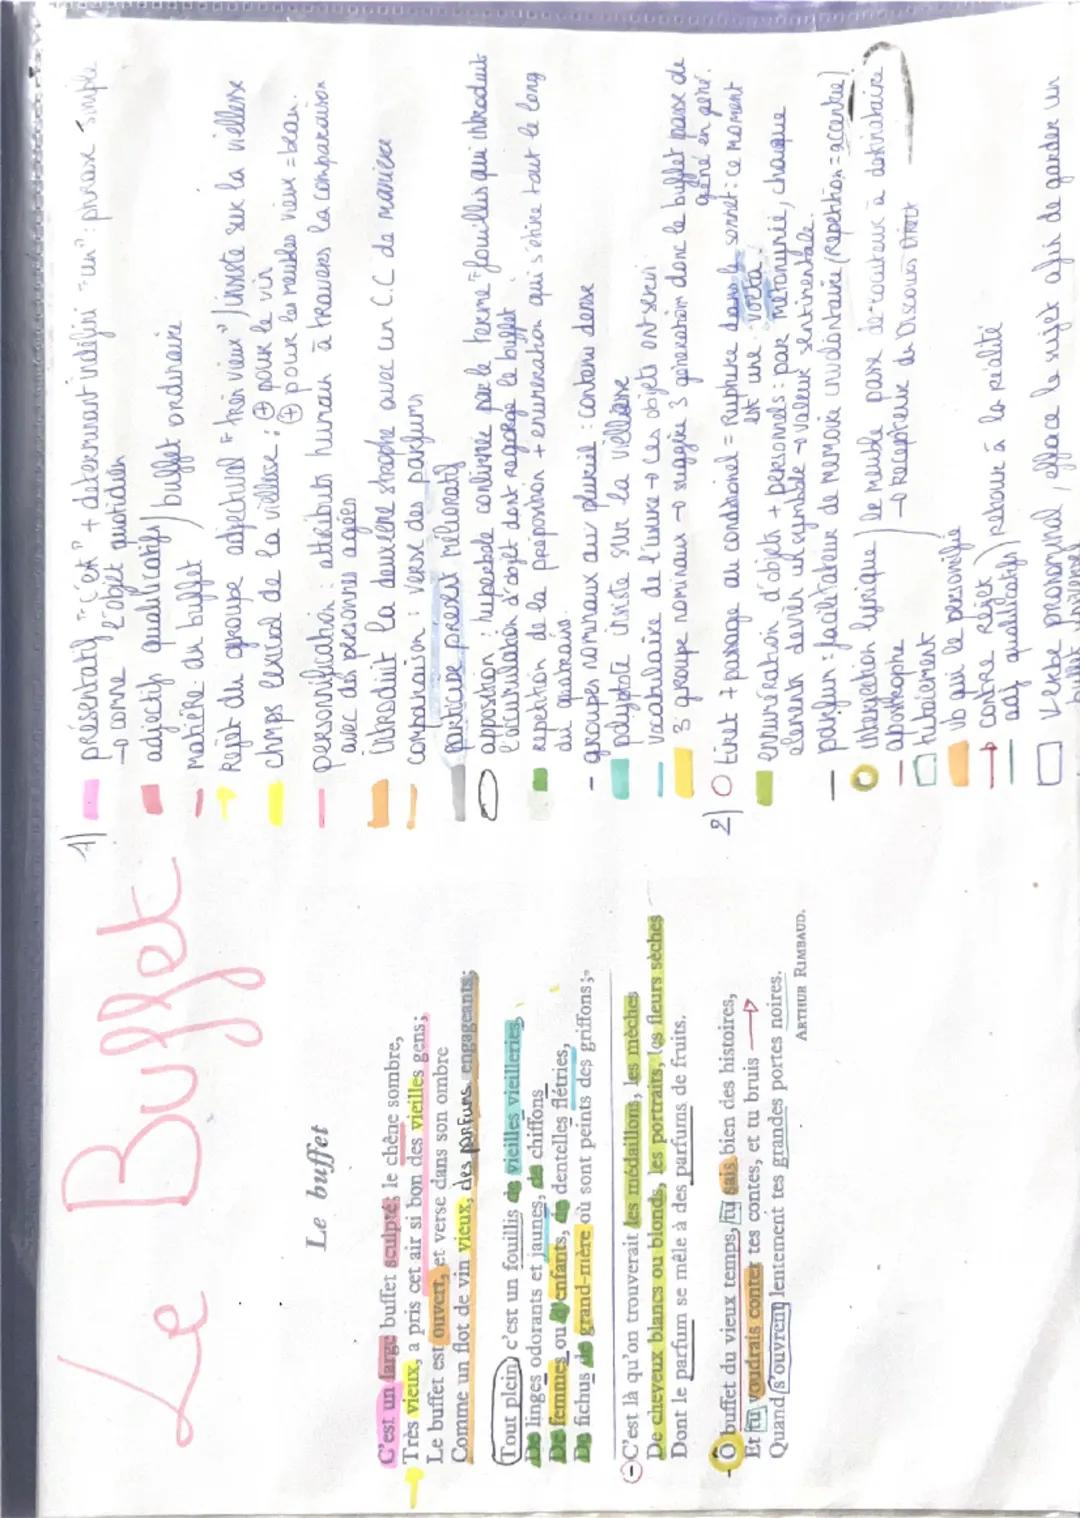 Le Buffet
Le buffet
C'est un large buffet sculpté; le chêne sombre,
Très vieux, a pris cet air si bon des vieilles gens;
Le buffet est ouvert, et verse dans son ombre
Comme un flot de vin vieux, des parfums engageants;
Tout plein, c'est un fouillis de vieilles vieilleries,
De linges odorants et jaunes, de chiffons
De femmes ou d'enfants, de dentelles flétries,
De fichus de grand-mère où sont peints des griffons;
- C'est là qu'on trouverait les médaillons, les mèches
De cheveux blancs ou blonds, les portraits, les fleurs sèches
Dont le parfum se mêle à des parfums de fruits.
- Ô buffet du vieux temps, tu sais bien des histoires,
Et tu voudrais conter tes contes, et tu bruis →
Quand s'ouvrent lentement tes grandes portes noires.
ARTHUR RIMBAUD.
1) présentatif "c'est" + determinant indéfini "un": phrase simple
→ comme l'objet quotidien
adjectifs qualificatifs ) buffet ordinaire
- matière du buffet
Rejet du groupe adjectival "très vieux" / insiste sur la viellesse
chmps lexical de la viellesse : ⊕ pour le vin
⊕ pour les meubles vieux = beau.
personnification : attributs humain à travers la comparaison
avec des personnes agées
introduit la deuxième strophe avec un C.C de manière
comparaison : verse des parfums
participe présent mélioratif
apposition : hyperbole confirmée par le terme "fouillis qui introduit
l'accumulation d'objet dont regorge le buffet
repetition de la préposition + enumeration qui s'étire tout le long
du quatrain
- groupes nominaux au pluriel : contenu dense
polyptote insiste sur la viellesse
vocabulaire de l'usure → ces objets ont servi
3 groupe nominaux → suggère 3 génération donc le buffet passe de
géné en géné.
2) tiret + passage au conditionnel = Rupture dans le sonnet : ce moment
est une volta.
enumération d'objets + personnels : par métonymie, chaque
élements devient un symbole → valeur sentimentale.
parfum : facilitateur de mémoire involontaire (Repetition = accentué)
interjection lyrique ) le meuble passe de locuteur à destinataire
apostrophe → Recepteur du Discours Direct
tutoiement
vb qui le personnifie
contre Rejet ) retour à la réalité
adj qualificatifs
Verbe pronominal, efface le sujet afin de garder un